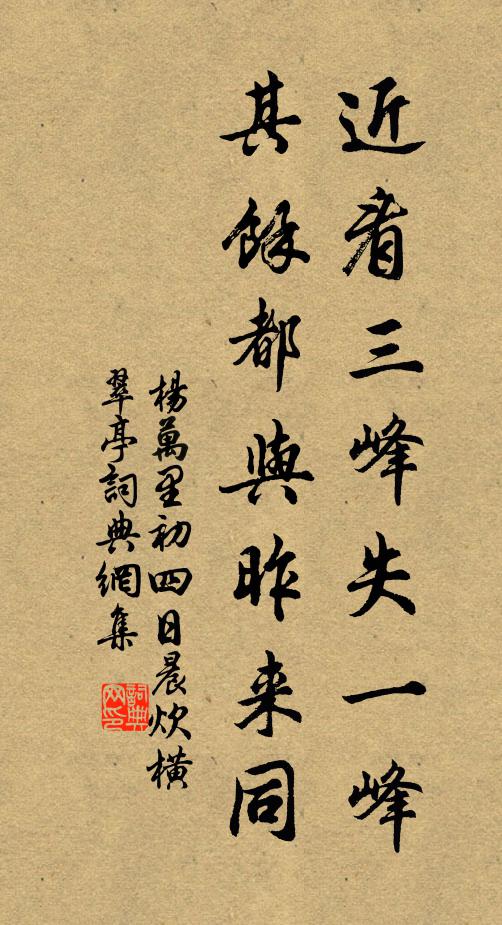 近看三峰失一峰
其餘都與昨来同
楊萬里初四日晨炊橫
翠亭詞典網集
詞典网印